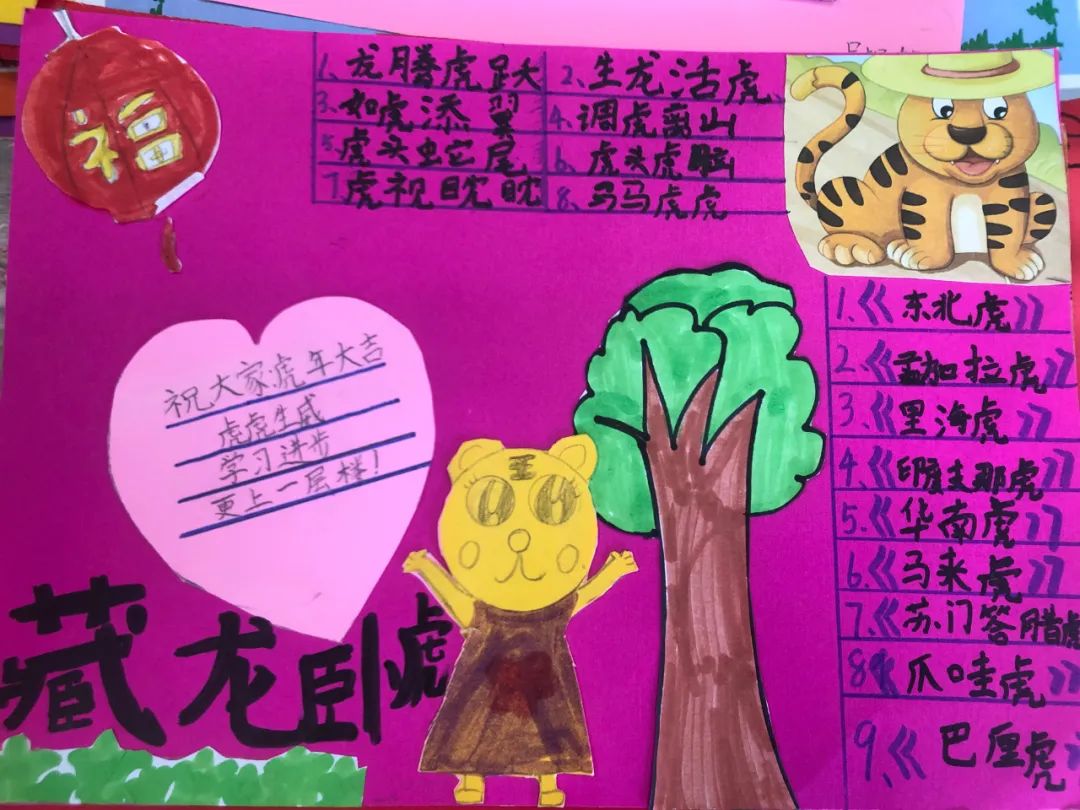 福
1、龙腾虎跃 2、生龙活虎、
3、如虎添翼 4、调虎离山
5、虎头蛇尾 6、虎头虎脑
7、虎视眈眈 8、马马虎虎
祝大家虎年大吉
虎虎生威
学习进步
更上一层楼!
王
藏龙卧虎
1、《东北虎》
2、《孟加拉虎》
3、《里海虎》
4、《印度支那虎》
5、《华南虎》
6、《马来虎》
7、《苏门答腊虎
8、《爪哇虎》
9、《巴厘虎》